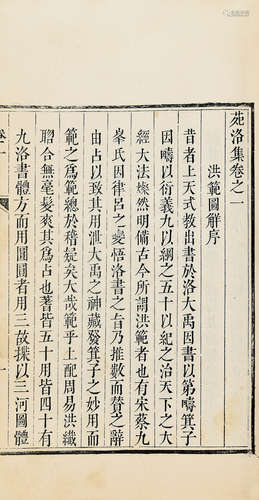 苑洛集卷之一
洪範圖解序
昔者上天式教出書於洛大禹因書以第疇箕子
因疇以衍義九以綱之五十以紀之治天下之大
經大法燦然明備古今所謂洪範者也有宋蔡九
峯氏因律呂之變悟洛書之旨乃推數而贊之辭
由占以致其用泄大禹之神藏發箕子之妙用而
範之爲範總於稽疑矣大哉範乎上配周易洪纖
脗合無毫髮爽其爲占也蓍皆五十用皆四十有
九洛書體方而用圓圓者用三故揲以三河圖體
卷一
一